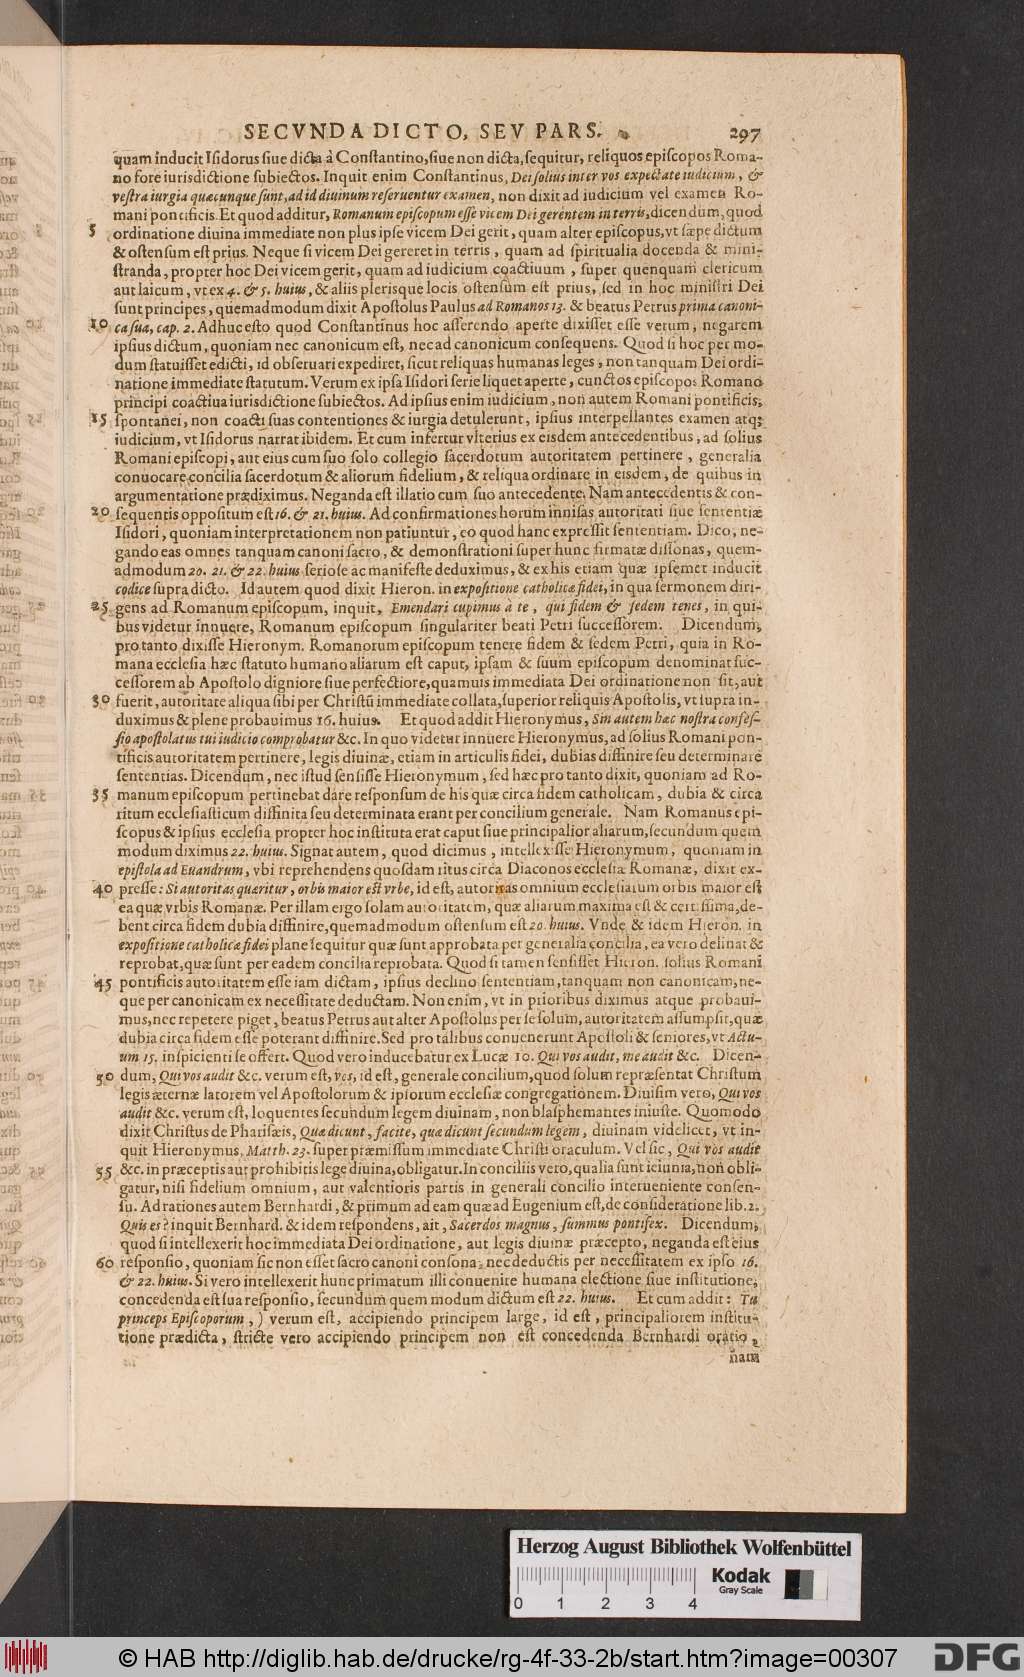 SECVNDA DICTO, SEV PARS. 297
quam inducit Isidorus siue dicta à Constantino, siue non dicta, sequitur, reliquos episcopos Roma-
no fore iurisdictione subiectos. Inquit enim Constantinus, Dei solius inter vos expectate iudicium, &
vestra iurgia quæcunque sunt, ad id diuinum reseruentur examen, non dixit ad iudicium vel examen Ro-
mani pontificis. Et quod additur, Romanum episcopum esse vicem Dei gerentem in terris, dicendum, quod
5 ordinatione diuina immediate non plus ipse vicem Dei gerit, quam alter episcopus, vt sæpe dictum
& ostensum est prius. Neque si vicem Dei gereret in terris, quam ad spiritualia docenda & mini-
stranda, propter hoc Dei vicem gerit, quam ad iudicium coactiuum, super quenquam clericum
aut laicum, vt ex 4. & 5. huius, & aliis plerisque locis ostensum est prius, sed in hoc ministri Dei
sunt principes, quemadmodum dixit Apostolus Paulus ad Romanos 13. & beatus Petrus prima canoni-
10 ca sua, cap. 2. Adhuc esto quod Constantinus hoc asserendo aperte dixisset esse verum, negarem
ipsius dictum, quoniam nec canonicum est, nec ad canonicum consequens. Quod si hoc per mo-
dum statuisset edicti, id obseruari expediret, sicut reliquas humanas leges, non tanquam Dei ordi-
natione immediate statutum. Verum ex ipsa Isidori serie liquet aperte, cunctos episcopos Romano
principi coactiua iurisdictione subiectos. Ad ipsius enim iudicium, non autem Romani pontificis,
15 spontanei, non coacti suas contentiones & iurgia detulerunt, ipsius interpellantes examen atq;
iudicium, vt Isidorus narrat ibidem. Et cum infertur vlterius ex eisdem antecedentibus, ad solius
Romani episcopi, aut eius cum suo solo collegio sacerdotum autoritatem pertinere, generalia
conuocare concilia sacerdotum & aliorum fidelium, & reliqua ordinare in eisdem, de quibus in
argumentatione prædiximus. Neganda est illatio cum suo antecedente. Nam antecedentis & con-
20 sequentis oppositum est 16. & 21. huius. Ad confirmationes horum innisas autoritati siue sententiæ
Isidori, quoniam interpretationem non patiuntur, eo quod hanc expressit sententiam. Dico, ne-
gando eas omnes tanquam canoni sacro, & demonstrationi super hunc firmatæ dissonas, quem-
admodum 20. 21. & 22. huius seriose ac manifeste deduximus, & ex his etiam quæ ipsemet inducit
codice supra dicto. Id autem quod dixit Hieron. in expositione catholicæ fidei, in qua sermonem diri-
25 gens ad Romanum episcopum, inquit, Emendari cupimus à te, qui fidem & sedem tenes, in qui-
bus videtur innuere, Romanum episcopum singulariter beati Petri successorem. Dicendum,
pro tanto dixisse Hieronym. Romanorum episcopum tenere fidem & sedem Petri, quia in Ro-
mana ecclesia hæc statuto humano aliarum est caput, ipsam & suum episcopum denominat suc-
cessorem ab Apostolo digniore siue perfectiore, quamuis immediata Dei ordinatione non sit, aut
30 fuerit, autoritate aliqua sibi per Christū immediate collata, superior reliquis Apostolis, vt supra in-
duximus & plene probauimus 16. huius. Et quod addit Hieronymus, Sin autem hæc nostra confes-
sio apostolatus tui iudicio comprobatur &c. In quo videtur innuere Hieronymus, ad solius Romani pon-
tificis autoritatem pertinere, legis diuinæ, etiam in articulis fidei, dubias diffinire seu determinare
sententias. Dicendum, nec istud sensisse Hieronymum, sed hæc pro tanto dixit, quoniam ad Ro-
35 manum episcopum pertinebat dare responsum de his quæ circa fidem catholicam, dubia & circa
ritum ecclesiasticum diffinita seu determinata erant per concilium generale. Nam Romanus epi-
scopus & ipsius ecclesia propter hoc instituta erat caput siue principalior aliarum, secundum quem
modum diximus 22. huius. Signat autem, quod dicimus, intellexisse Hieronymum, quoniam in
epistola ad Euandrum, vbi reprehendens quosdam ritus circa Diaconos ecclesiæ Romanæ, dixit ex-
40 presse: Si autoritas quæritur, orbis maior est vrbe, id est, autoritas omnium ecclesiarum orbis maior est
ea quæ vrbis Romanæ. Per illam ergo solam autoritatem, quæ aliarum maxima est & certissima, de-
bent circa fidem dubia diffinire, quemadmodum ostensum est 20. huius. Vnde & idem Hieron. in
expositione catholicæ fidei plane sequitur quæ sunt approbata per generalia concilia, ea vero delinat &
reprobat, quæ sunt per eadem concilia reprobata. Quod si tamen sensisset Hieron. solius Romani
45 pontificis autoritatem esse iam dictam, ipsius declino sententiam, tanquam non canonicam, ne-
que per canonicam ex necessitate deductam. Non enim, vt in prioribus diximus atque probaui-
mus, nec repetere piget, beatus Petrus aut alter Apostolus per se solum, autoritatem assumpsit, quæ
dubia circa fidem esse poterant diffinire. Sed pro talibus conuenerunt Apostoli & seniores, vt Actu-
um 15. inspicienti se offert. Quod vero inducebatur ex Lucæ 10. Qui vos audit, me audit &c. Dicen-
50 dum, Qui vos audit &c. verum est, vos, id est, generale concilium, quod solum repræsentat Christum
legis æternæ latorem vel Apostolorum & ipsorum ecclesiæ congregationem. Diuisim vero, Qui vos
audit &c. verum est, loquentes secundum legem diuinam, non blasphemantes iniuste. Quomodo
dixit Christus de Pharisæis, Quæ dicunt, facite, quæ dicunt secundum legem, diuinam videlicet, vt in-
quit Hieronymus, Matth. 23. super præmissum immediate Christi oraculum. Vel sic, Qui vos audit
55 &c. in præceptis aut prohibitis lege diuina, obligatur. In conciliis vero, qualia sunt ieiunia, non obli-
gatur, nisi fidelium omnium, aut valentioris partis in generali concilio interueniente consen-
su. Ad rationes autem Bernhardi, & primum ad eam quæ ad Eugenium est, de consideratione lib. 2.
Quis es? inquit Bernhard. & idem respondens, ait, Sacerdos magnus, summus pontifex. Dicendum,
quod si intellexerit hoc immediata Dei ordinatione, aut legis diuinæ præcepto, neganda est eius
60 responsio, quoniam sic non esset sacro canoni consona, nec deductis per necessitatem ex ipso 16.
& 22. huius. Si vero intellexerit hunc primatum illi conuenire humana electione siue institutione,
concedenda est sua responsio, secundum quem modum dictum est 22. huius. Et cum addit: Tu
princeps Episcoporum,) verum est, accipiendo principem large, id est, principaliorem institu-
tione prædicta, stricte vero accipiendo principem non est concedenda Bernhardi oratio,
nam
Herzog August Bibliothek Wolfenbüttel
Kodak
Gray Scale
0 1 2 3 4
© HAB http://diglib.hab.de/drucke/rg-4f-33-2b/start.htm?image=00307
DFG